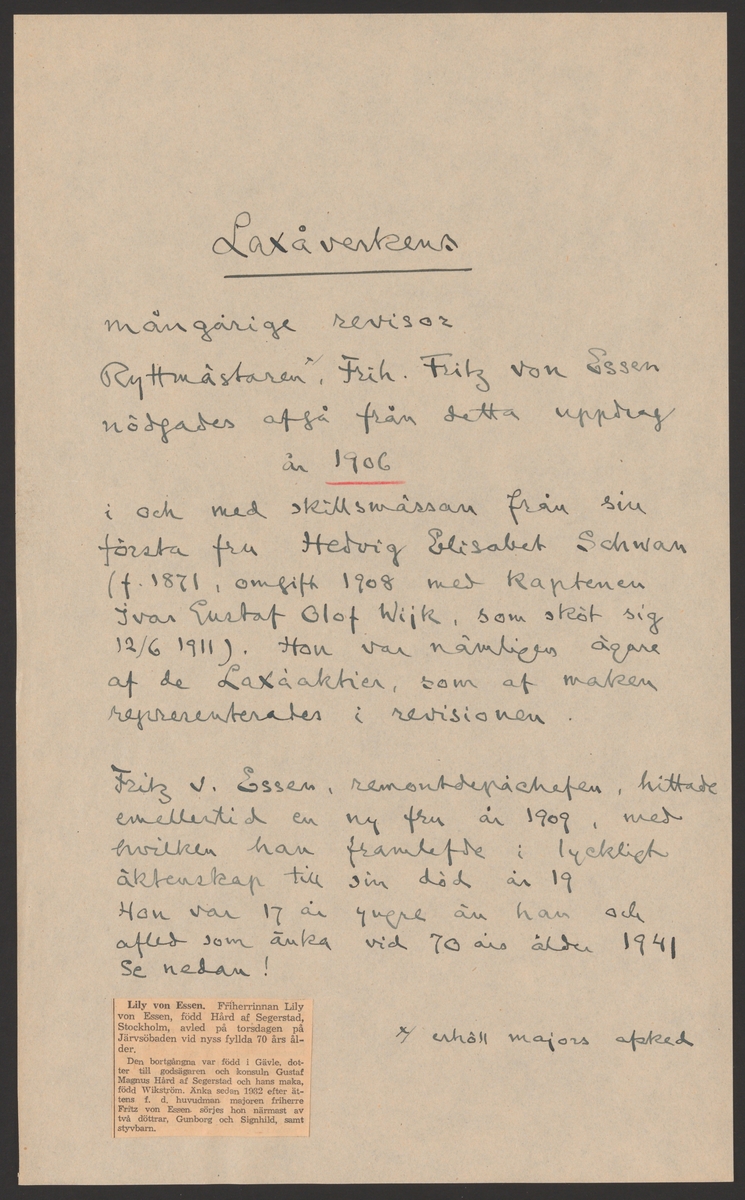 Laxåverkens
mångårige revisor
Ryttmästaren x/, Frih. Fritz von Essen
nödgades afgå från detta uppdrag
år 1906
i och med skillsmässan från sin
första fru Hedvig Elisabet Schwan
(f. 1871, omgift 1908 med kaptenen
Ivar Gustaf Olof Wijk, som sköt sig
12/6 1911). Hon var nämligen ägare
af de Laxåaktier, som af maken
representerades i revisionen.
Fritz v. Essen, remontdepåchefen, hittade
emellertid en ny fru år 1909, med
hvilken han framlefde i lyckligt
äktenskap till sin död år 19
Hon var 17 år yngre än han och
afled som änka vid 70 års ålder 1941
Se nedan!
x/ erhöll majors afsked
Lily von Essen. Friherrinnan Lily
von Essen, född Hård af Segerstad,
Stockholm, avled på torsdagen på
Järvsöbaden vid nyss fyllda 70 års ål-
der.
Den bortgångna var född i Gävle, dot-
ter till godsägaren och konsuln Gustaf
Magnus Hård af Segerstad och hans maka,
född Wikström. Änka sedan 1932 efter ät-
tens f. d. huvudman majoren friherre
Fritz von Essen sörjes hon närmast av
två döttrar, Gunborg och Signhild, samt
styvbarn.